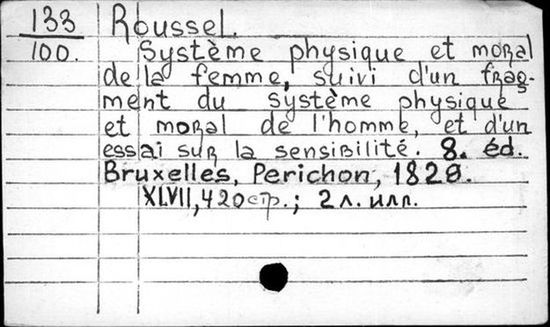 133 Roussel.
100. Système physique et moral
de la femme, suivi d'un frag-
ment du système physique
et moral de l'homme, et d'un
essai sur la sensibilité. 8. éd.
Bruxelles, Perichon, 1828.
XLVII, 420 стр.; 2 л. илл.